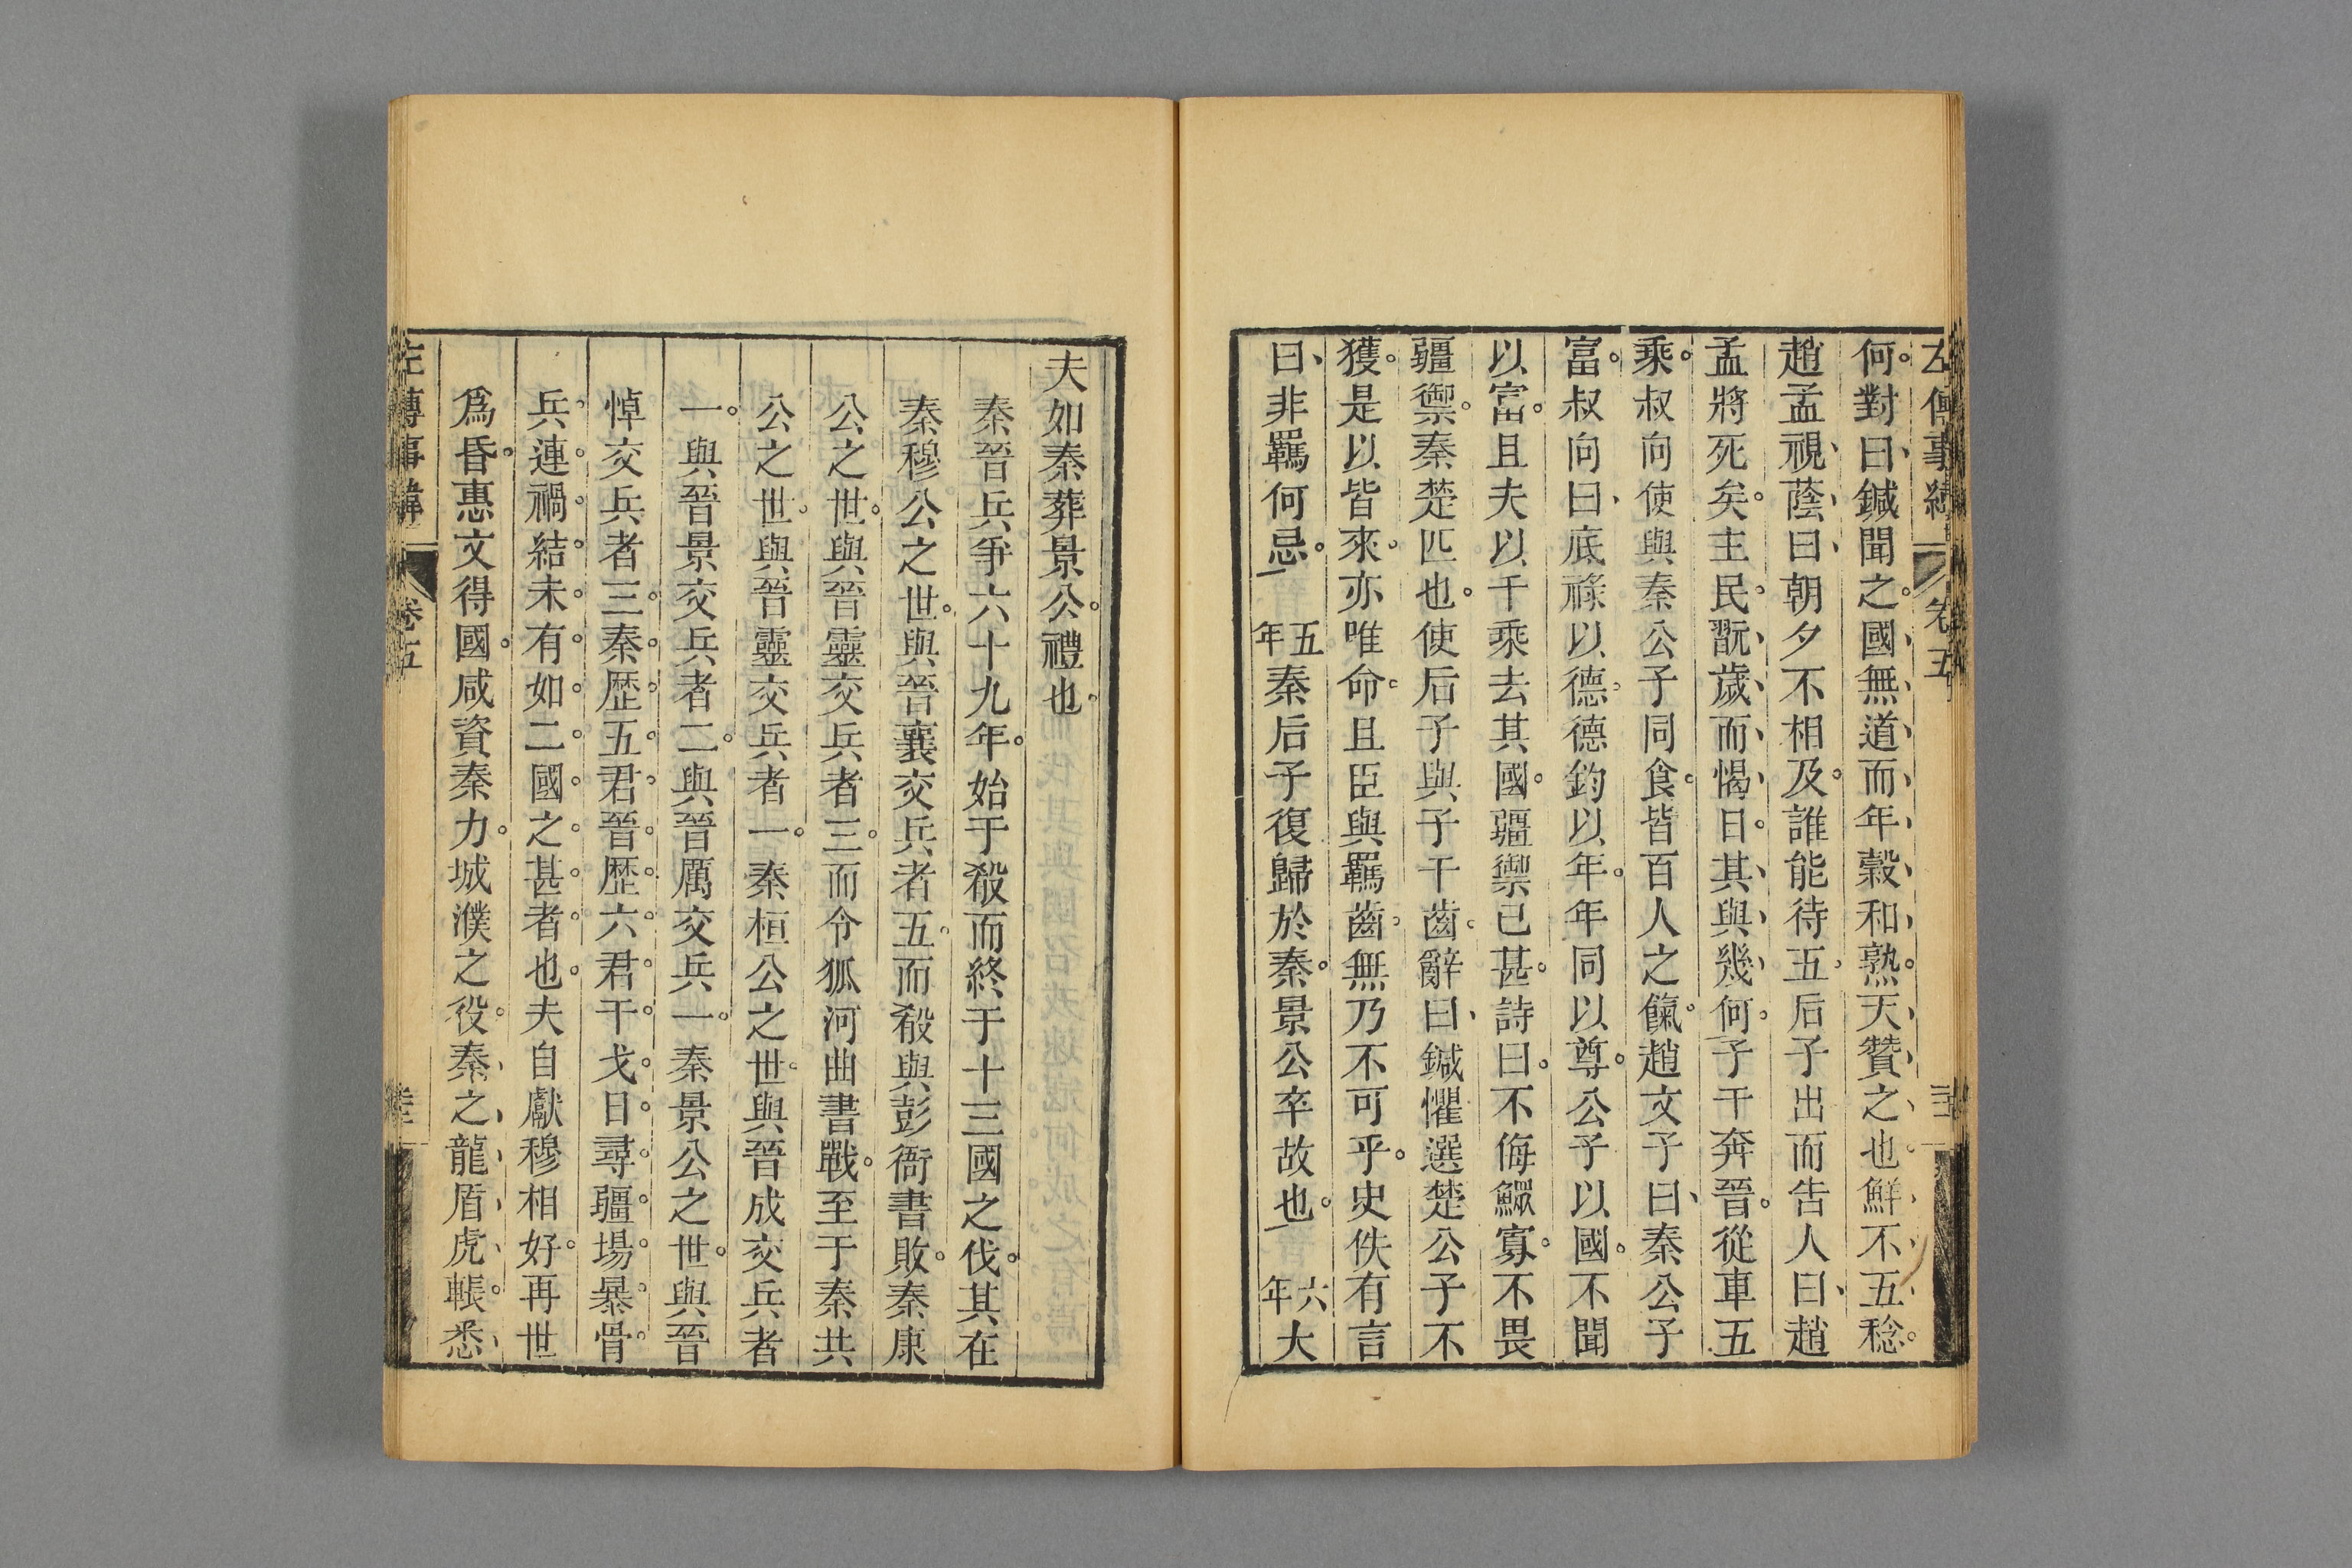 左傳事緯
卷五
何對曰鍼聞之國無道而年穀和熟天贊之也鮮不五稔
趙孟視蔭曰朝夕不相及誰能待五后子出而告人曰趙
孟將死矣主民翫歲而愒日其與幾何子干奔晉從車五
乘叔向使與秦公子同食皆百人之餼趙文子曰秦公子
富叔向曰底祿以德德鈞以年年同以尊公子以國不聞
以富且夫以千乘去其國疆禦已甚詩曰不侮鰥寡不畏
疆禦秦楚匹也使后子與子干齒辭曰鍼懼選楚公子不
獲是以皆來亦唯命且臣與羈齒無乃不可乎史佚有言
曰非羈何忌五年秦后子復歸於秦景公卒故也六年大
夫如秦葬景公禮也
秦晉兵爭六十九年始于殽而終于十三國之伐其在
秦穆公之世與晉襄交兵者五而殽與彭衙書敗秦康
公之世與晉靈交兵者三而令狐河曲書戰至于秦共
公之世與晉靈交兵者一秦桓公之世與晉成交兵者
一與晉景交兵者二與晉厲交兵一秦景公之世與晉
悼交兵者三秦歷五君晉歷六君干戈日尋疆場暴骨
兵連禍結未有如二國之甚者也夫自獻穆相好再世
爲昏惠文得國咸資秦力城濮之役秦之龍盾虎韔悉
左傳事緯
卷五